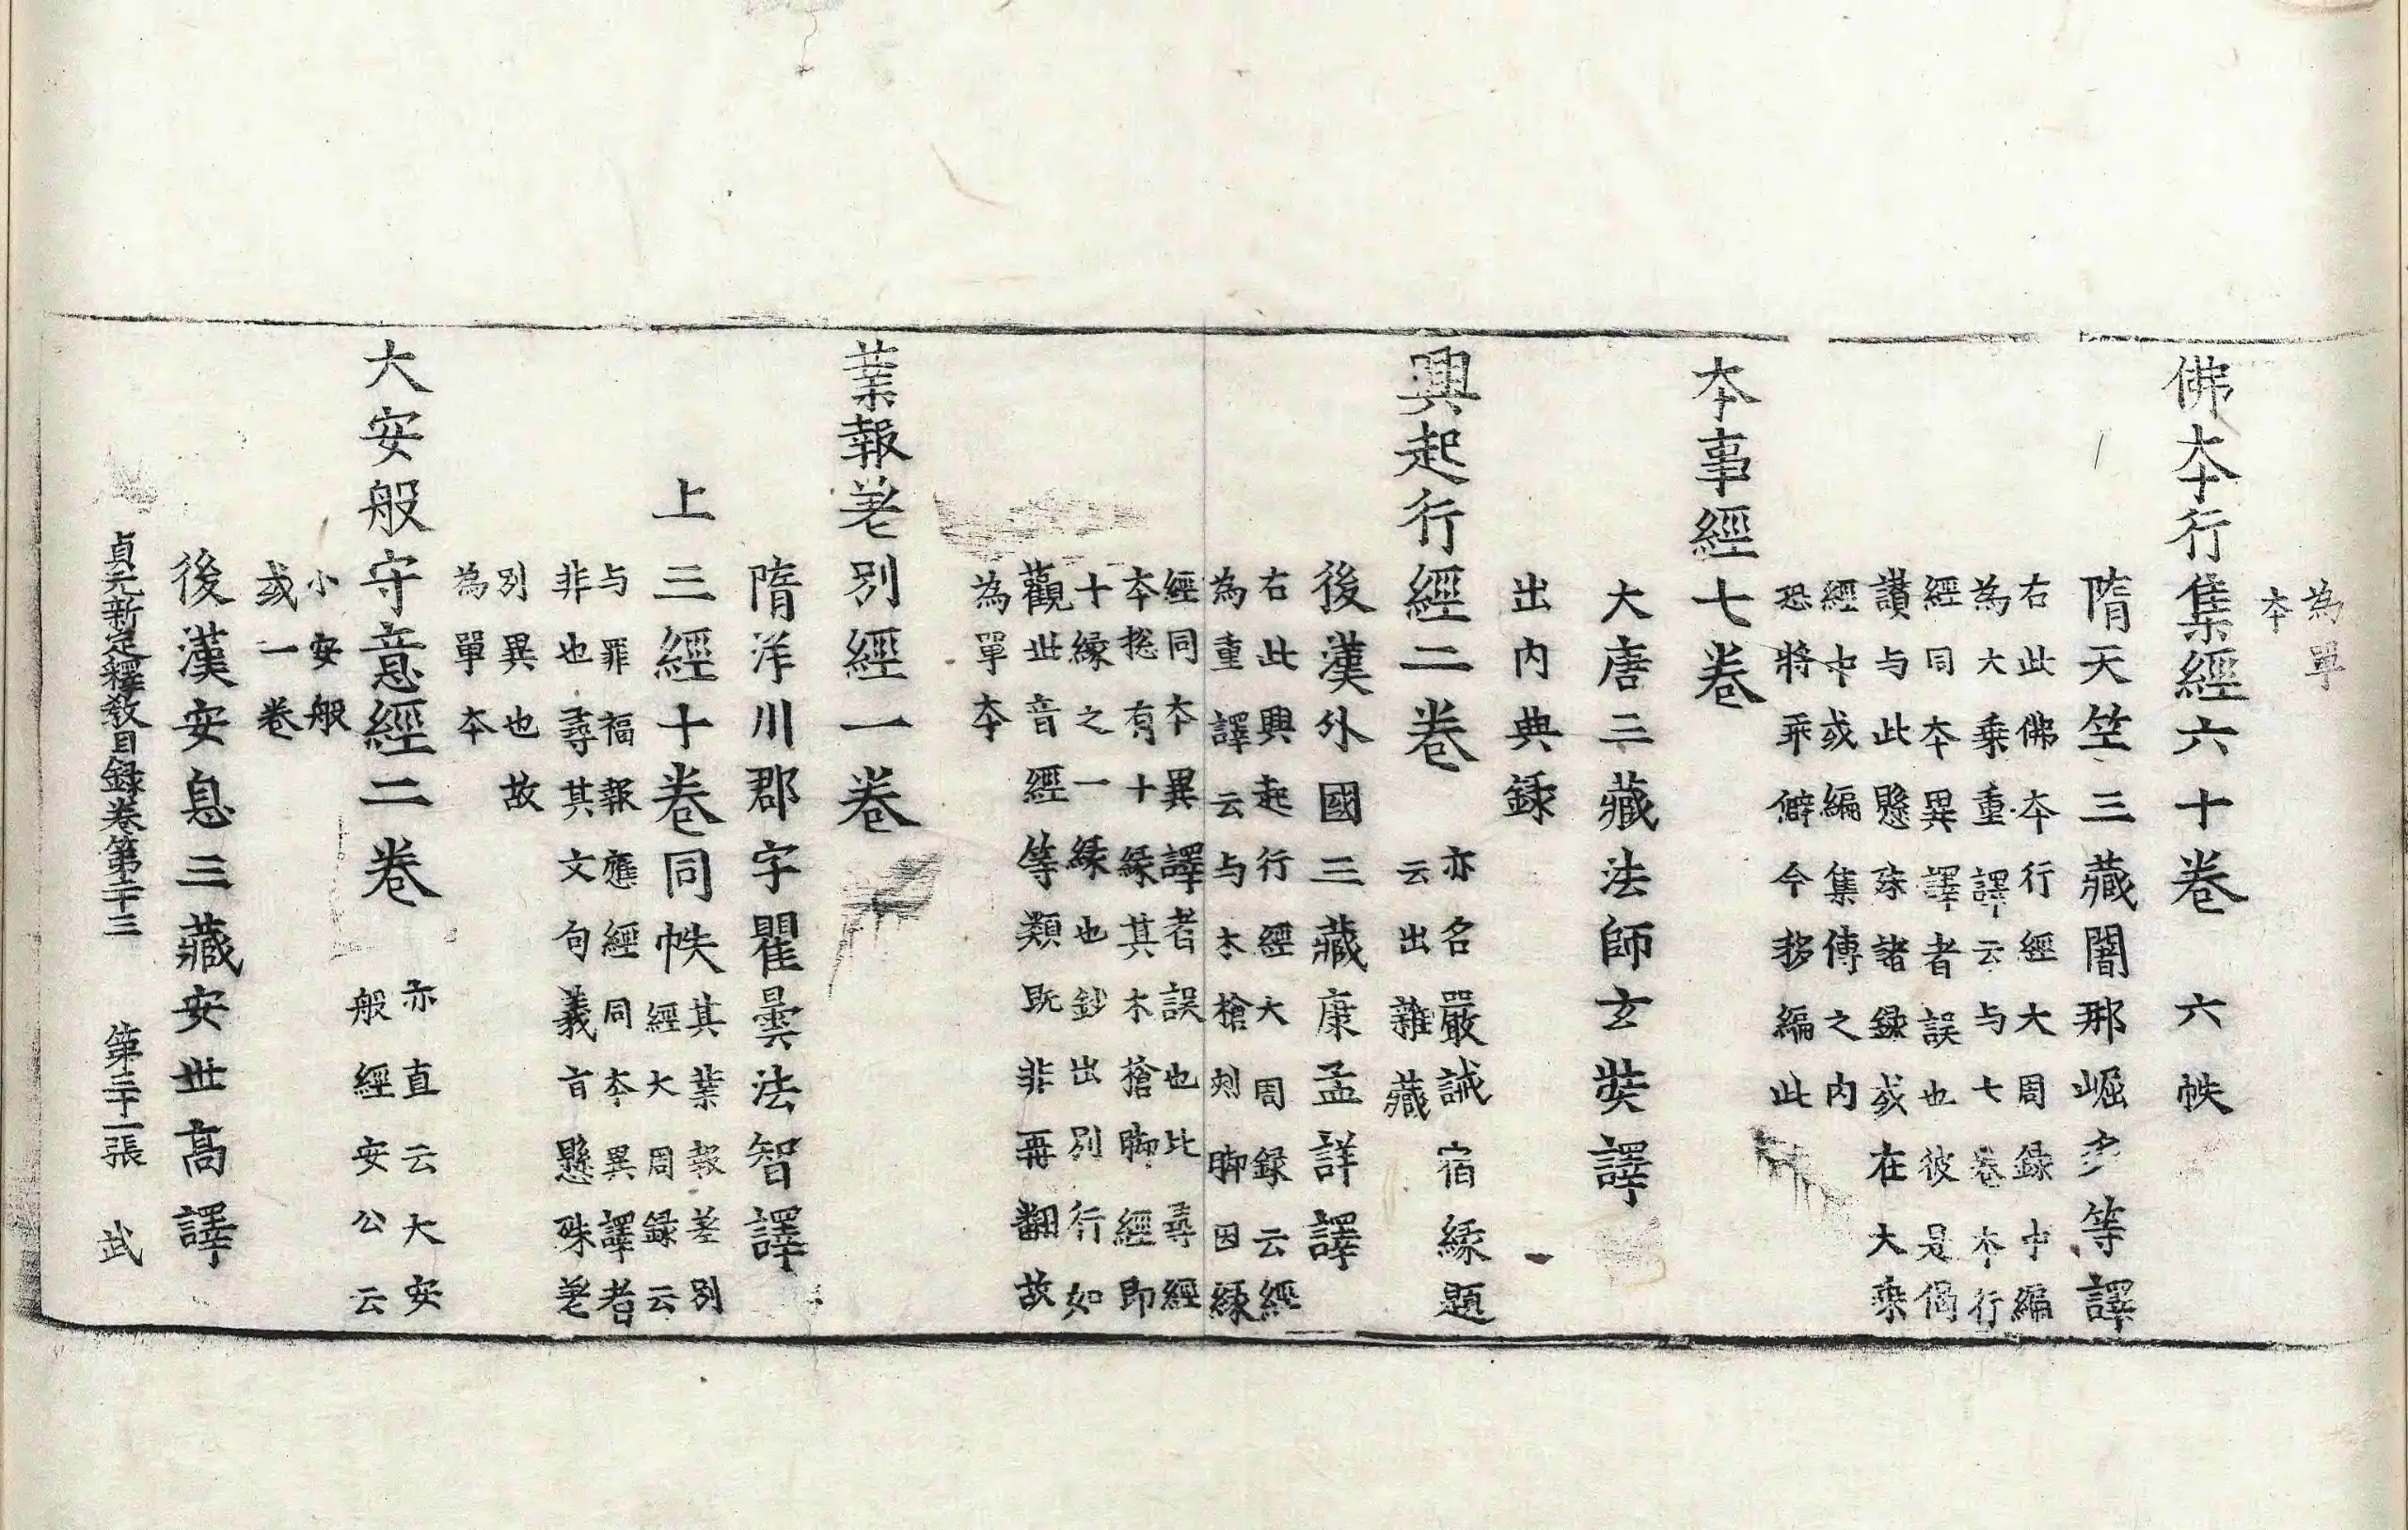 為單
本
佛本行集經六十卷 六帙
隋天竺三藏闍那崛多等譯
右此佛本行經大周録中編
為大乗重譯云与七卷本行
經同本異譯者誤也彼是偈
讃与此懸殊諸録或在大乗
經中或編集傳之内
恐將乖僻今移編此
本事經七卷
大唐三藏法師玄奘譯
出内典録
興起行經二卷
亦名嚴誡宿緣題
云出雜藏
後漢外國三藏康孟詳譯
右此興起行經大周録云經
為重譯云与木槍刺脚因緣
經同本異譯者誤也比尋經
本揔有十緣其木槍脚經即
十緣之一緣也鈔出別行如
觀世音經等類既非再翻故
為單本
業報差別經一卷
隋洋川郡守瞿曇法智譯
上三經十卷同帙
其業報差別
經大周録云
与罪福報應經同本異譯者
非也尋其文句義旨懸殊差
別異也故
為單本
大安般守意經二卷
亦直云大安
般經安公云
小安般
或一卷
後漢安息三藏安世高譯
貞元新定釋教目録卷第二十三 第二十一張 武